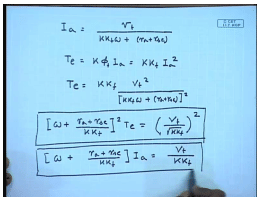 Ia = Vt / (KKfω + (ra+rse))
Te = Kφf Ia = KKf Ia²
Te = KKf Vt² / [KKfω + (ra+rse)]²
[ω + (ra+rse)/KKf]² Te = (Vt/√KKf)²
[ω + (ra+rse)/KKf] Ia = Vt/KKf